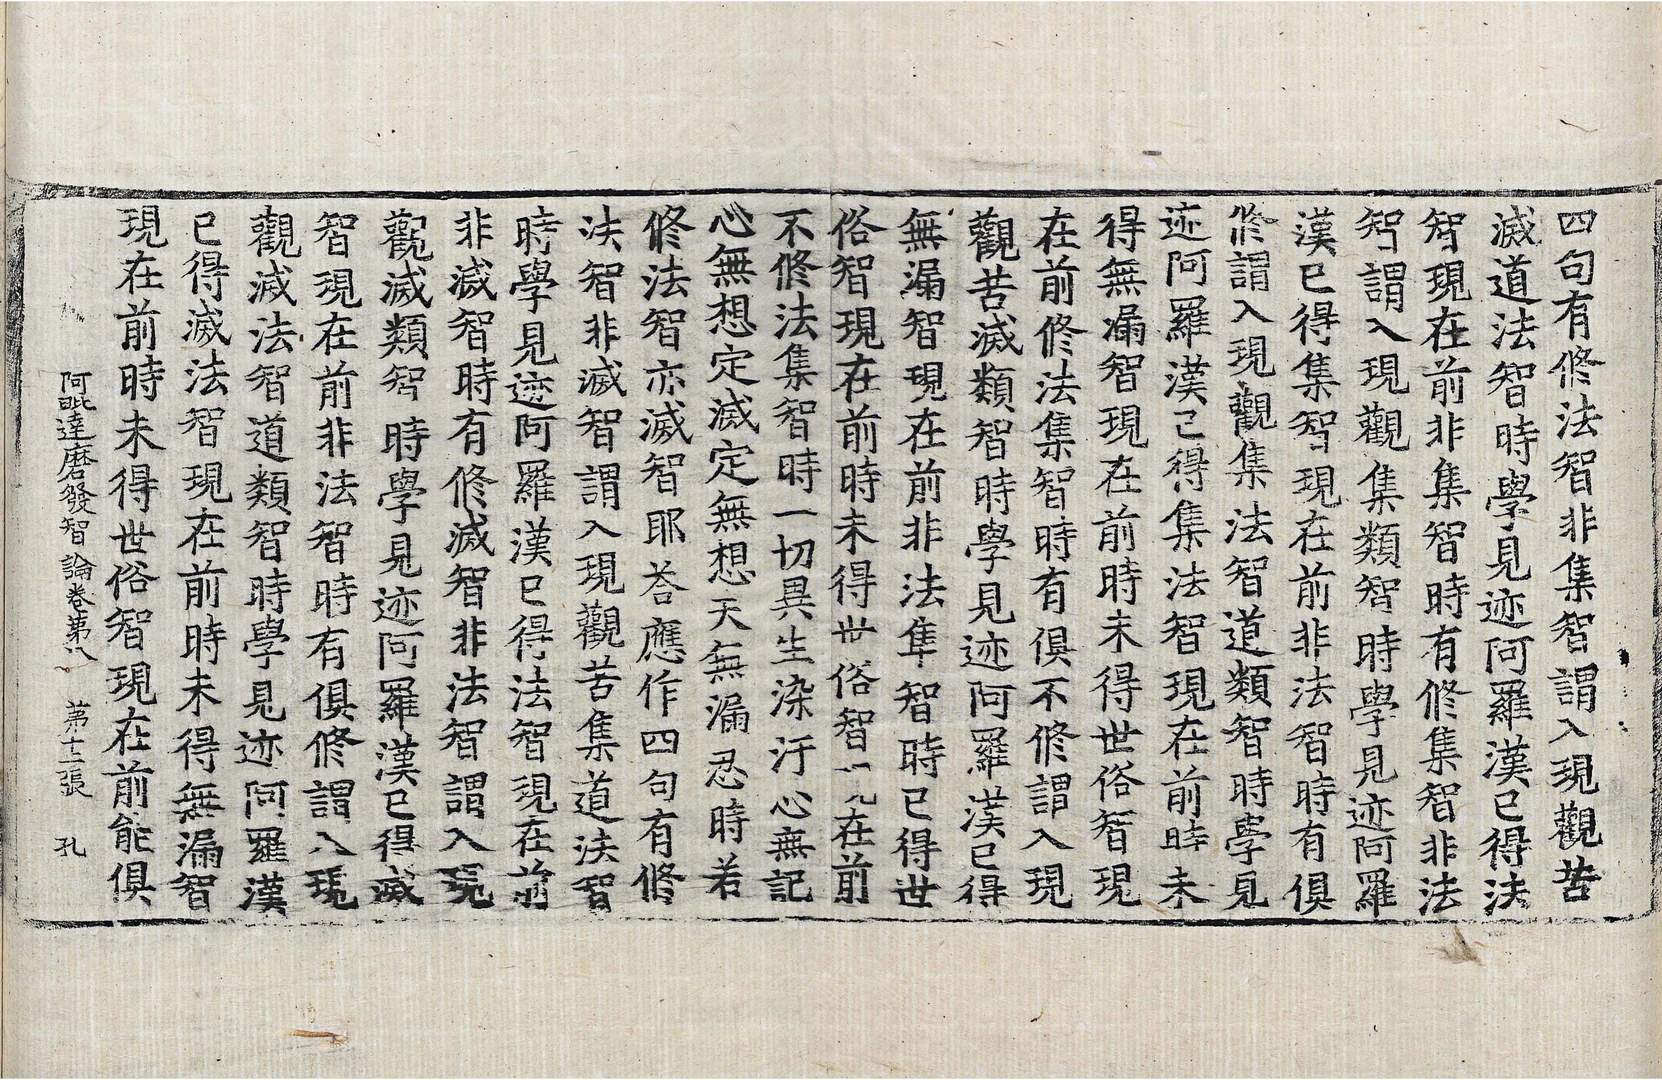 四句有修法智非集智謂入現觀苦
滅道法智時學見迹阿羅漢已得法
智現在前非集智時有修集智非法
智謂入現觀集類智時學見迹阿羅
漢已得集智現在前非法智時有俱
修謂入現觀集法智道類智時學見
迹阿羅漢已得集法智現在前時未
得無漏智現在前時未得世俗智現
在前修法集智時有俱不修謂入現
觀苦滅類智時學見迹阿羅漢已得
無漏智現在前非法集智時已得世
俗智現在前時未得世俗智現在前
不修法集智時一切異生染汙心無記
心無想定滅定無想天無漏忍時若
修法智亦滅智耶荅應作四句有修
法智非滅智謂入現觀苦集道法智
時學見迹阿羅漢已得法智現在前
非滅智時有修滅智非法智謂入現
觀滅類智時學見迹阿羅漢已得滅
智現在前非法智時有俱修謂入現
觀滅法智道類智時學見迹阿羅漢
已得滅法智現在前時未得無漏智
現在前時未得世俗智現在前能俱
阿毗達磨發智論卷第八 第十二張 孔